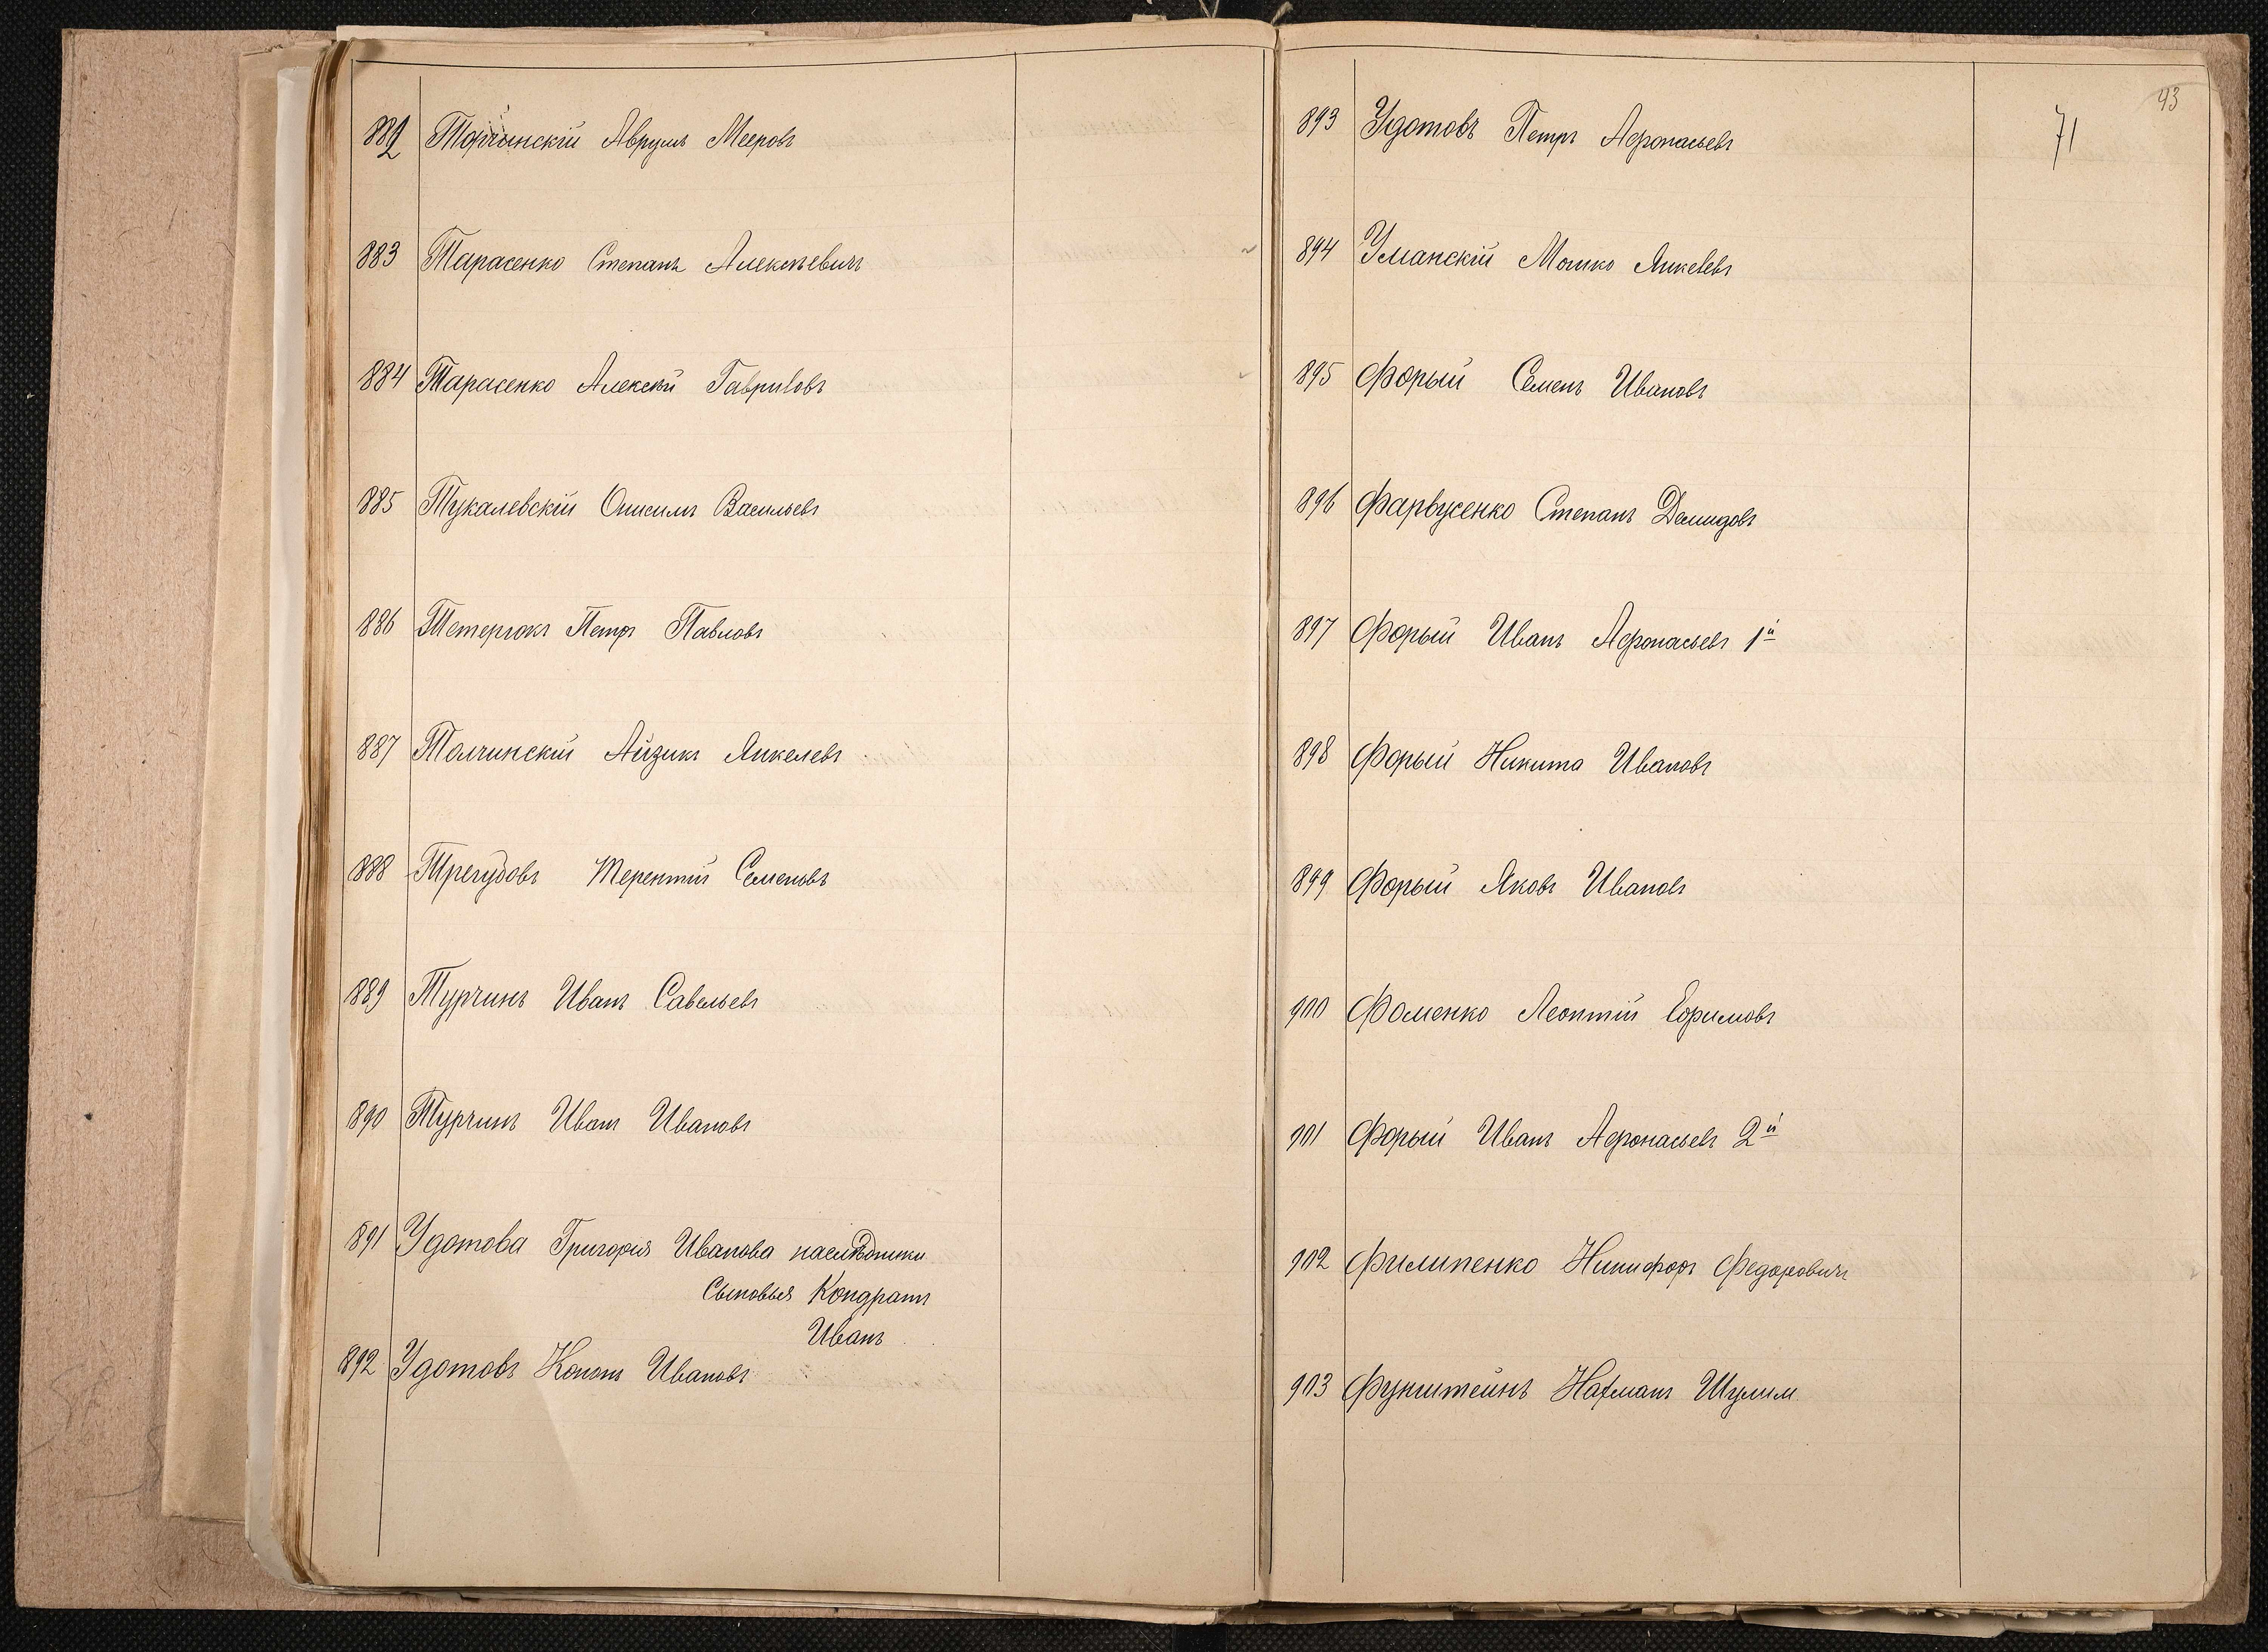 882 Торчинскій Аврумъ Мееровъ
883 Тарасенко Степанъ Алексѣевичъ
884 Тарасенко Алексѣй Гавриловъ
885 Тукалевскій Онисимъ Васильевъ
886 Тетерюкъ Петръ Павловъ
887 Толчинскій Айзикъ Янкелевъ
888 Трегубовъ Терентій Семеновъ
889 Турчинъ Иванъ Савельевъ
890 Турчинъ Иванъ Ивановъ
891 Удотова Григорія Иванова наслѣдники
Сыновья Кондратъ
Иванъ
892 Удотовъ Кононъ Ивановъ
43
71
893 Удотовъ Петръ Афонасьевъ
894 Уманскій Мошко Янкелевъ
895 Форый Семенъ Ивановъ
896 Фарвусенко Степанъ Демидовъ
897 Форый Иванъ Афонасьевъ 1й
898 Форый Никита Ивановъ
899 Форый Яковъ Ивановъ
900 Фоменко Леонтій Ефимовъ
901 Форый Иванъ Афонасьевъ 2й
902 Филипенко Никифоръ Федоровичъ
903 Функштейнъ Нахманъ Шулим